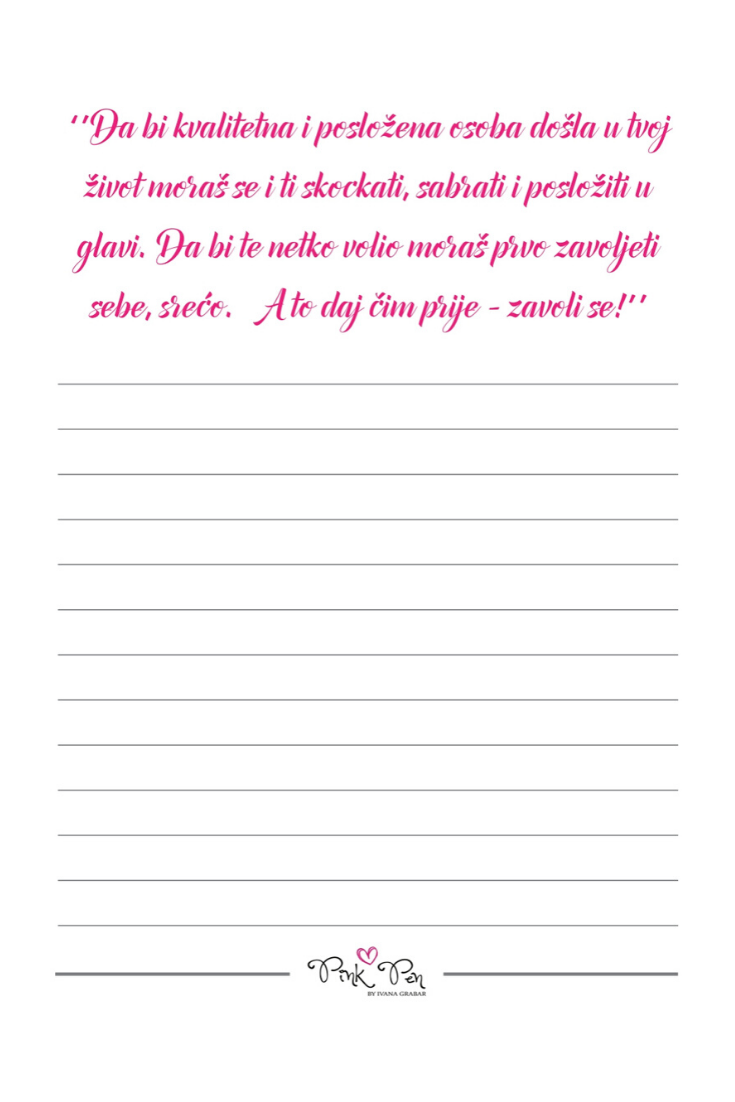 ‘’Da bi kvalitetna i posložena osoba došla u tvoj
život moraš se i ti skockati, sabrati i posložiti u
glavi. Da bi te netko volio moraš prvo zavoljeti
sebe, srećo. A to daj čim prije - zavoli se!’’
Pink Pen
BY IVANA GRABAR